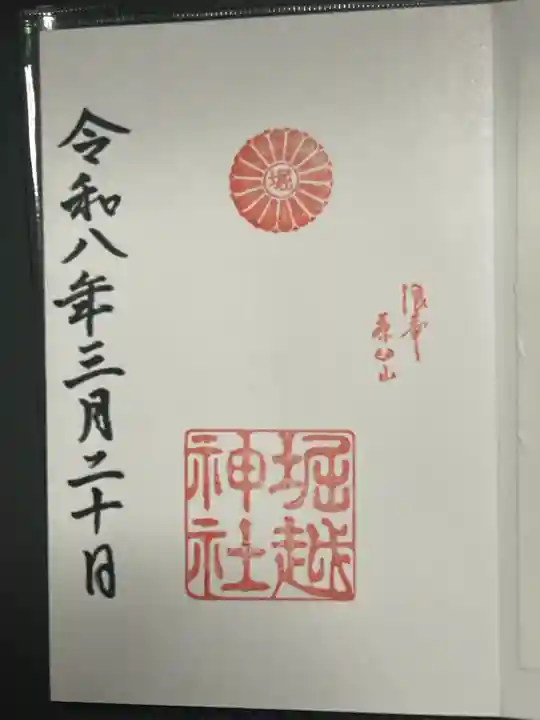 堀
浪華
茶臼山
堀越
神社
令和八年三月二十日